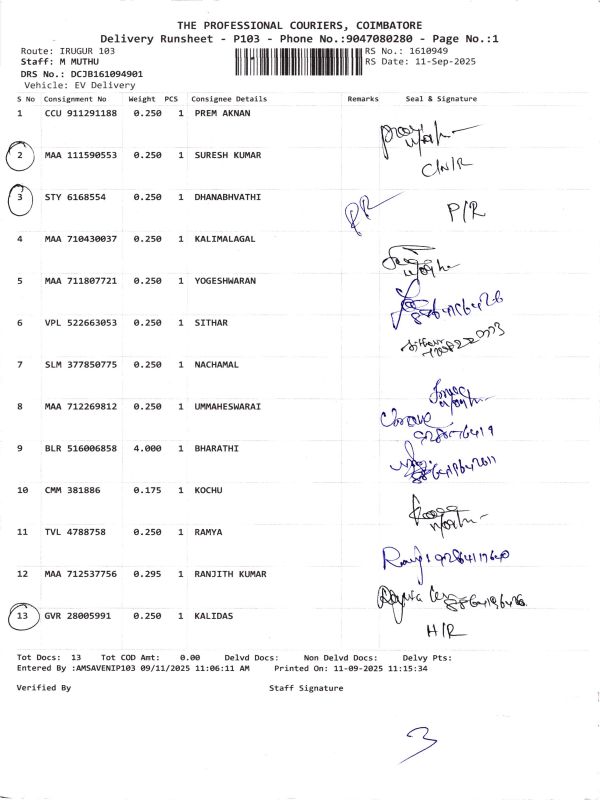 THE PROFESSIONAL COURIERS, COIMBATORE
Delivery Runsheet - P103 - Phone No.:9047080280 - Page No.:1
Route: IRUGUR 103 RS No.: 1610949
Staff: M MUTHU RS Date: 11-Sep-2025
DRS No.: DCJB161094901
Vehicle: EV Delivery
S No Consignment No Weight PCS Consignee Details Remarks Seal & Signature
1 CCU 911291188 0.250 1 PREM AKNAN
2 MAA 111590553 0.250 1 SURESH KUMAR C/N/R
3 STY 6168554 0.250 1 DHANABHVATHI P/R
4 MAA 710430037 0.250 1 KALIMALAGAL
5 MAA 711807721 0.250 1 YOGESHWARAN
6 VPL 522663053 0.250 1 SITHAR
7 SLM 377850775 0.250 1 NACHAMAL
8 MAA 712269812 0.250 1 UMMAHESWARAI
9 BLR 516006858 4.000 1 BHARATHI
10 CMM 381886 0.175 1 KOCHU
11 TVL 4788758 0.250 1 RAMYA
12 MAA 712537756 0.295 1 RANJITH KUMAR
13 GVR 28005991 0.250 1 KALIDAS H/R
Tot Docs: 13 Tot COD Amt: 0.00 Delvd Docs: Non Delvd Docs: Delvy Pts:
Entered By :AMSAVENIP103 09/11/2025 11:06:11 AM Printed On: 11-09-2025 11:15:34
Verified By Staff Signature
3